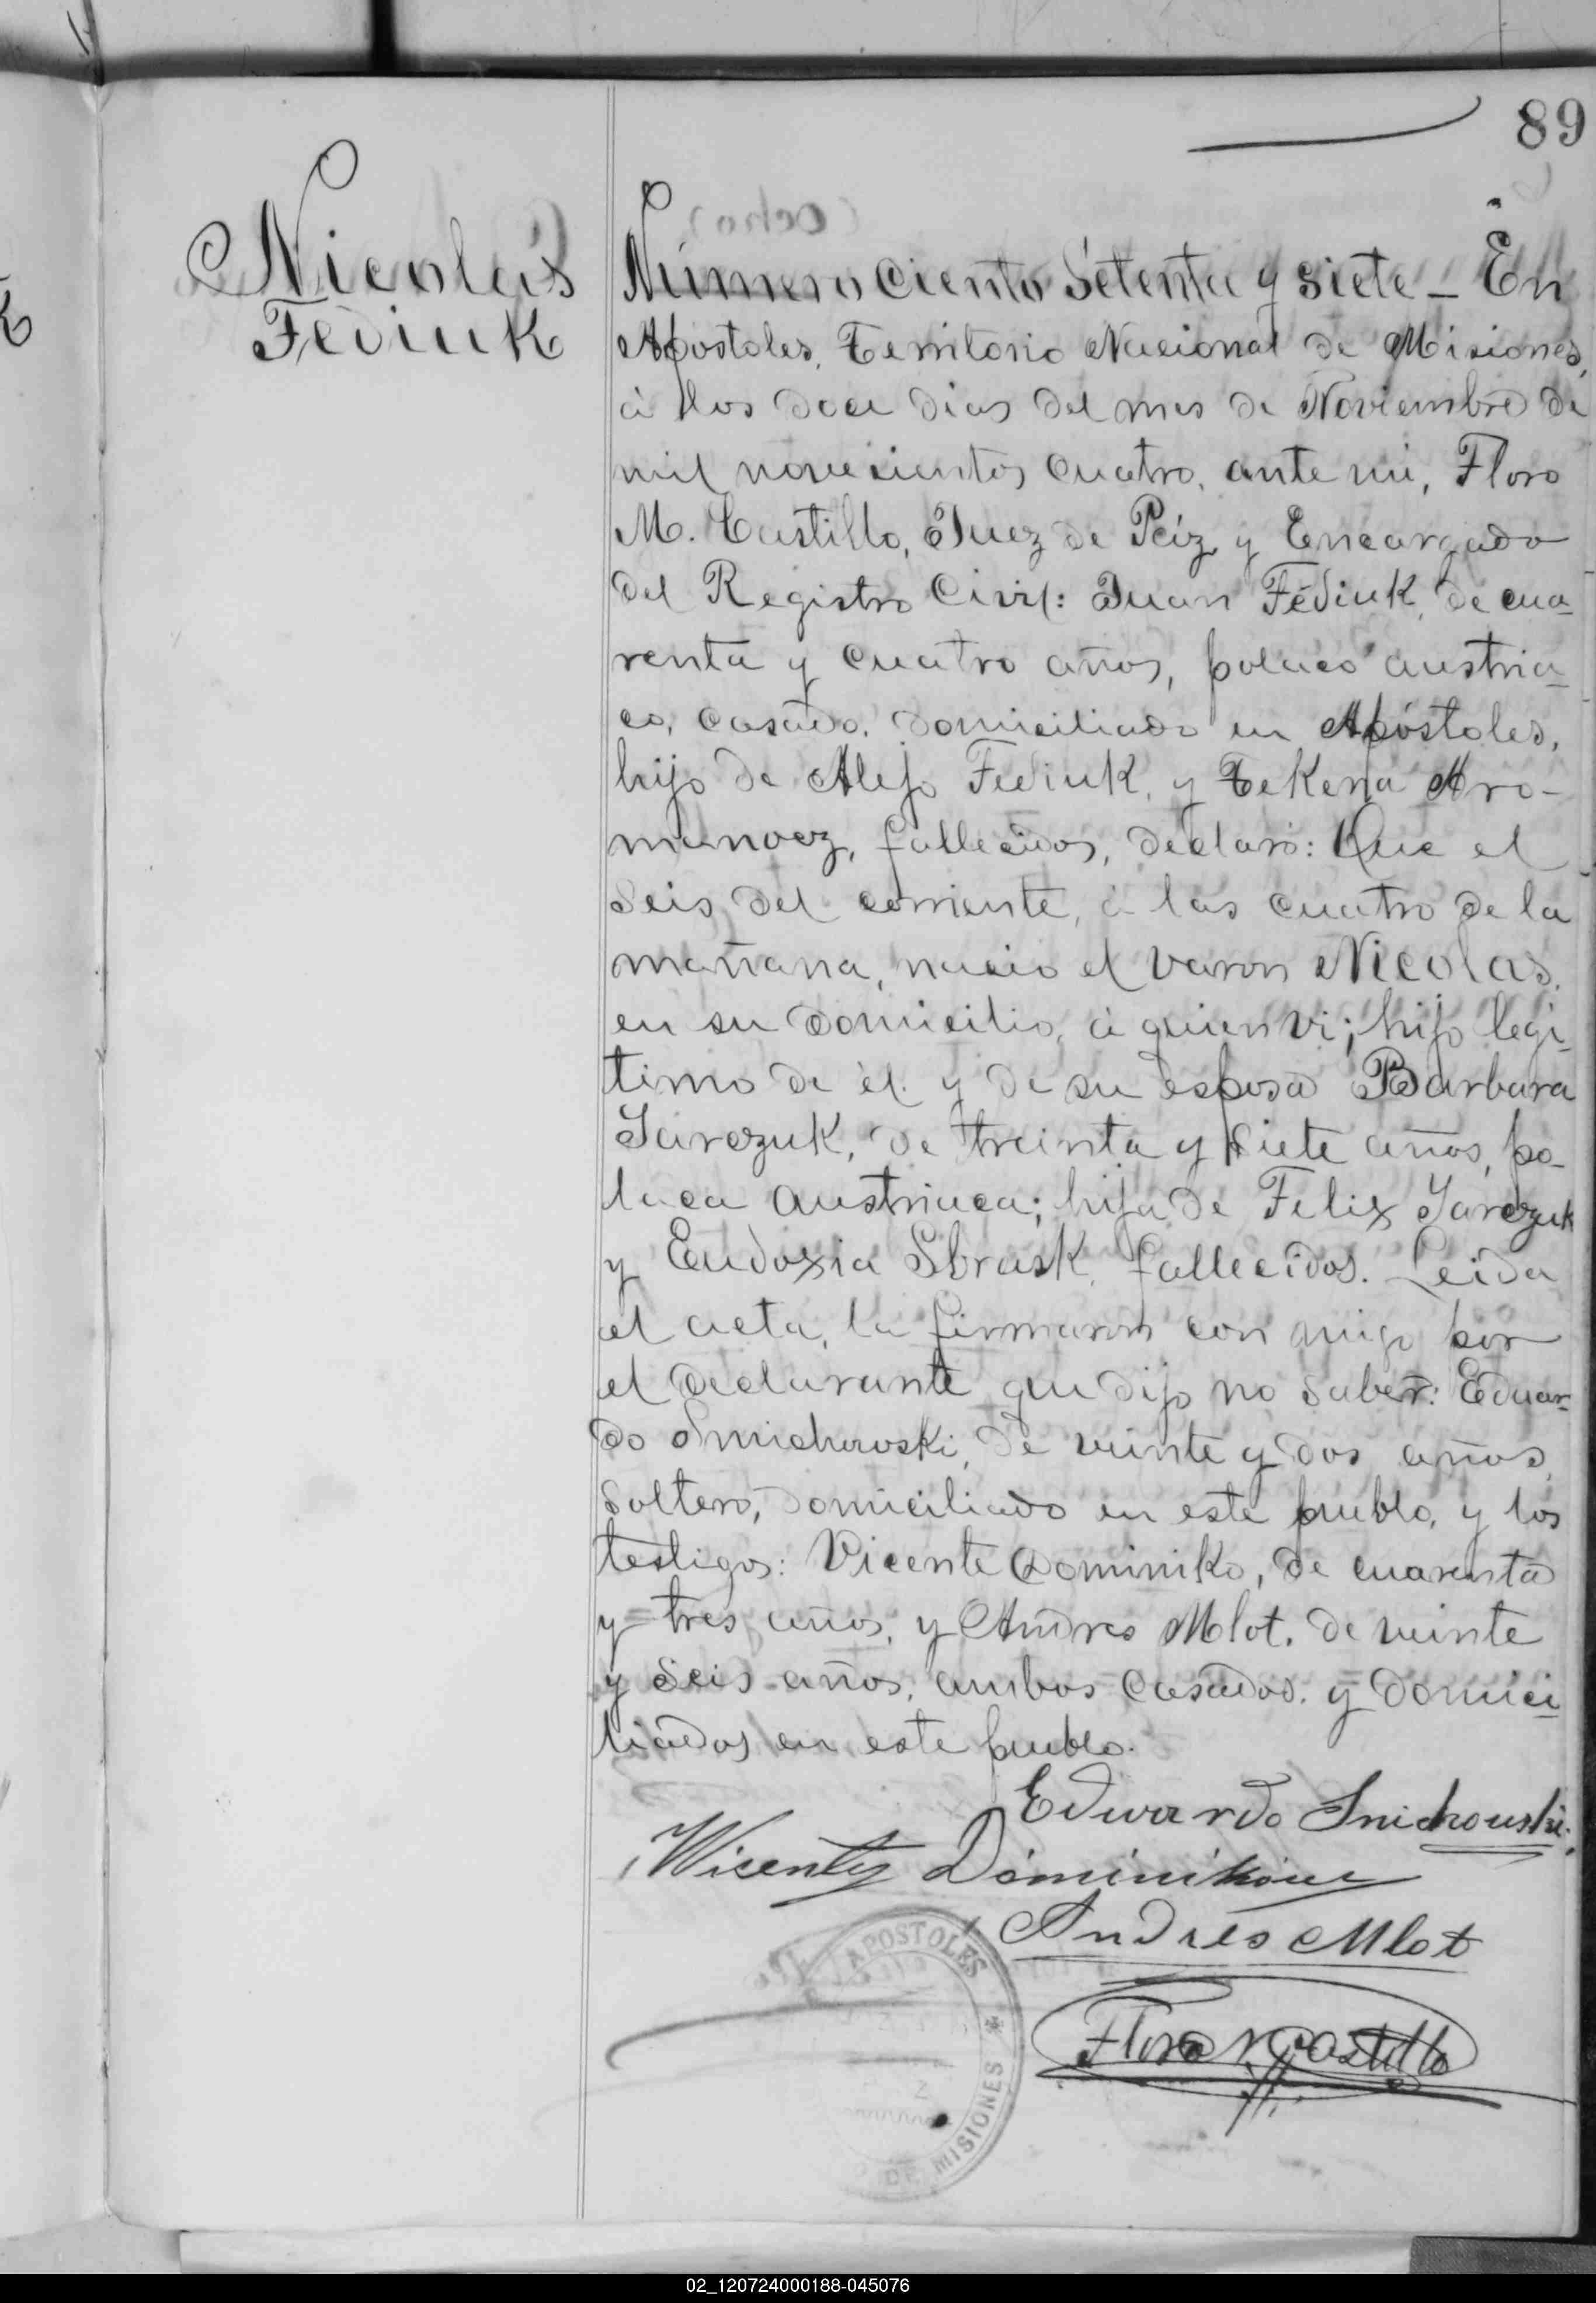 89
Nicolás
Fediuk
Número Ciento Setenta y siete _ En
Apostoles, Territorio Nacional de Misiones,
á los doce dias del mes de Noviembre de
mil novecientos cuatro, ante mi, Floro
M. Castillo, Juez de Páz y Encargado
del Registro Civil: Juan Fediuk, de cua-
renta y cuatro años, polaco austria-
co, casado, domiciliado en Apóstoles,
hijo de Alejo Fediuk, y Tekena Aro-
manoez, fallecidos, declaró: Que el
seis del corriente, á las cuatro de la
mañana, nació el varon Nicolas,
en su domicilio, á quien vi; hijo legi-
timo de él y de su esposa Barbara
Jarczuk, de treinta y siete años, po-
laca austriaca; hija de Felix Jarczuk
y Eudoxia Sbrask, fallecidos. Leida
el acta, la firmaron con migo por
el declarante que dijo no saber: Eduar-
do Smichowski, de veinte y dos años,
soltero, domiciliado en este pueblo, y los
testigos: Vicente Dominiko, de cuarenta
y tres años, y Andres Mlot, de veinte
y seis años, ambos casados y domici-
liados en este pueblo.
Edwardo Smichowski.
Wicenty Dominikow
Andrés Mlot
Floro M Castillo
APOSTOLES * DE MISIONES
02_120724000188-045076